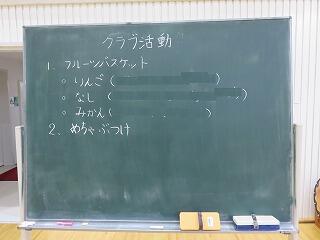 クラブ活動
1. フルーツバスケット
○ りんご( )
○ なし( )
○ みかん( )
2. めちゃぶつけ